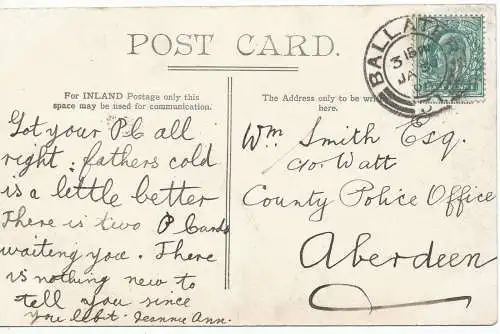 POST CARD.
For INLAND Postage only this
space may be used for communication.
The Address only to be
here
Got your PC all
right: fathers cold
is a little better
There is two P Cards
waiting you. There
is nothing new to
tell you since
you left. Jeannie Ann.
Wm Smith Esq.
c/o Watt
County Police Office
Aberdeen
BALLATER
3 15 PM
JA